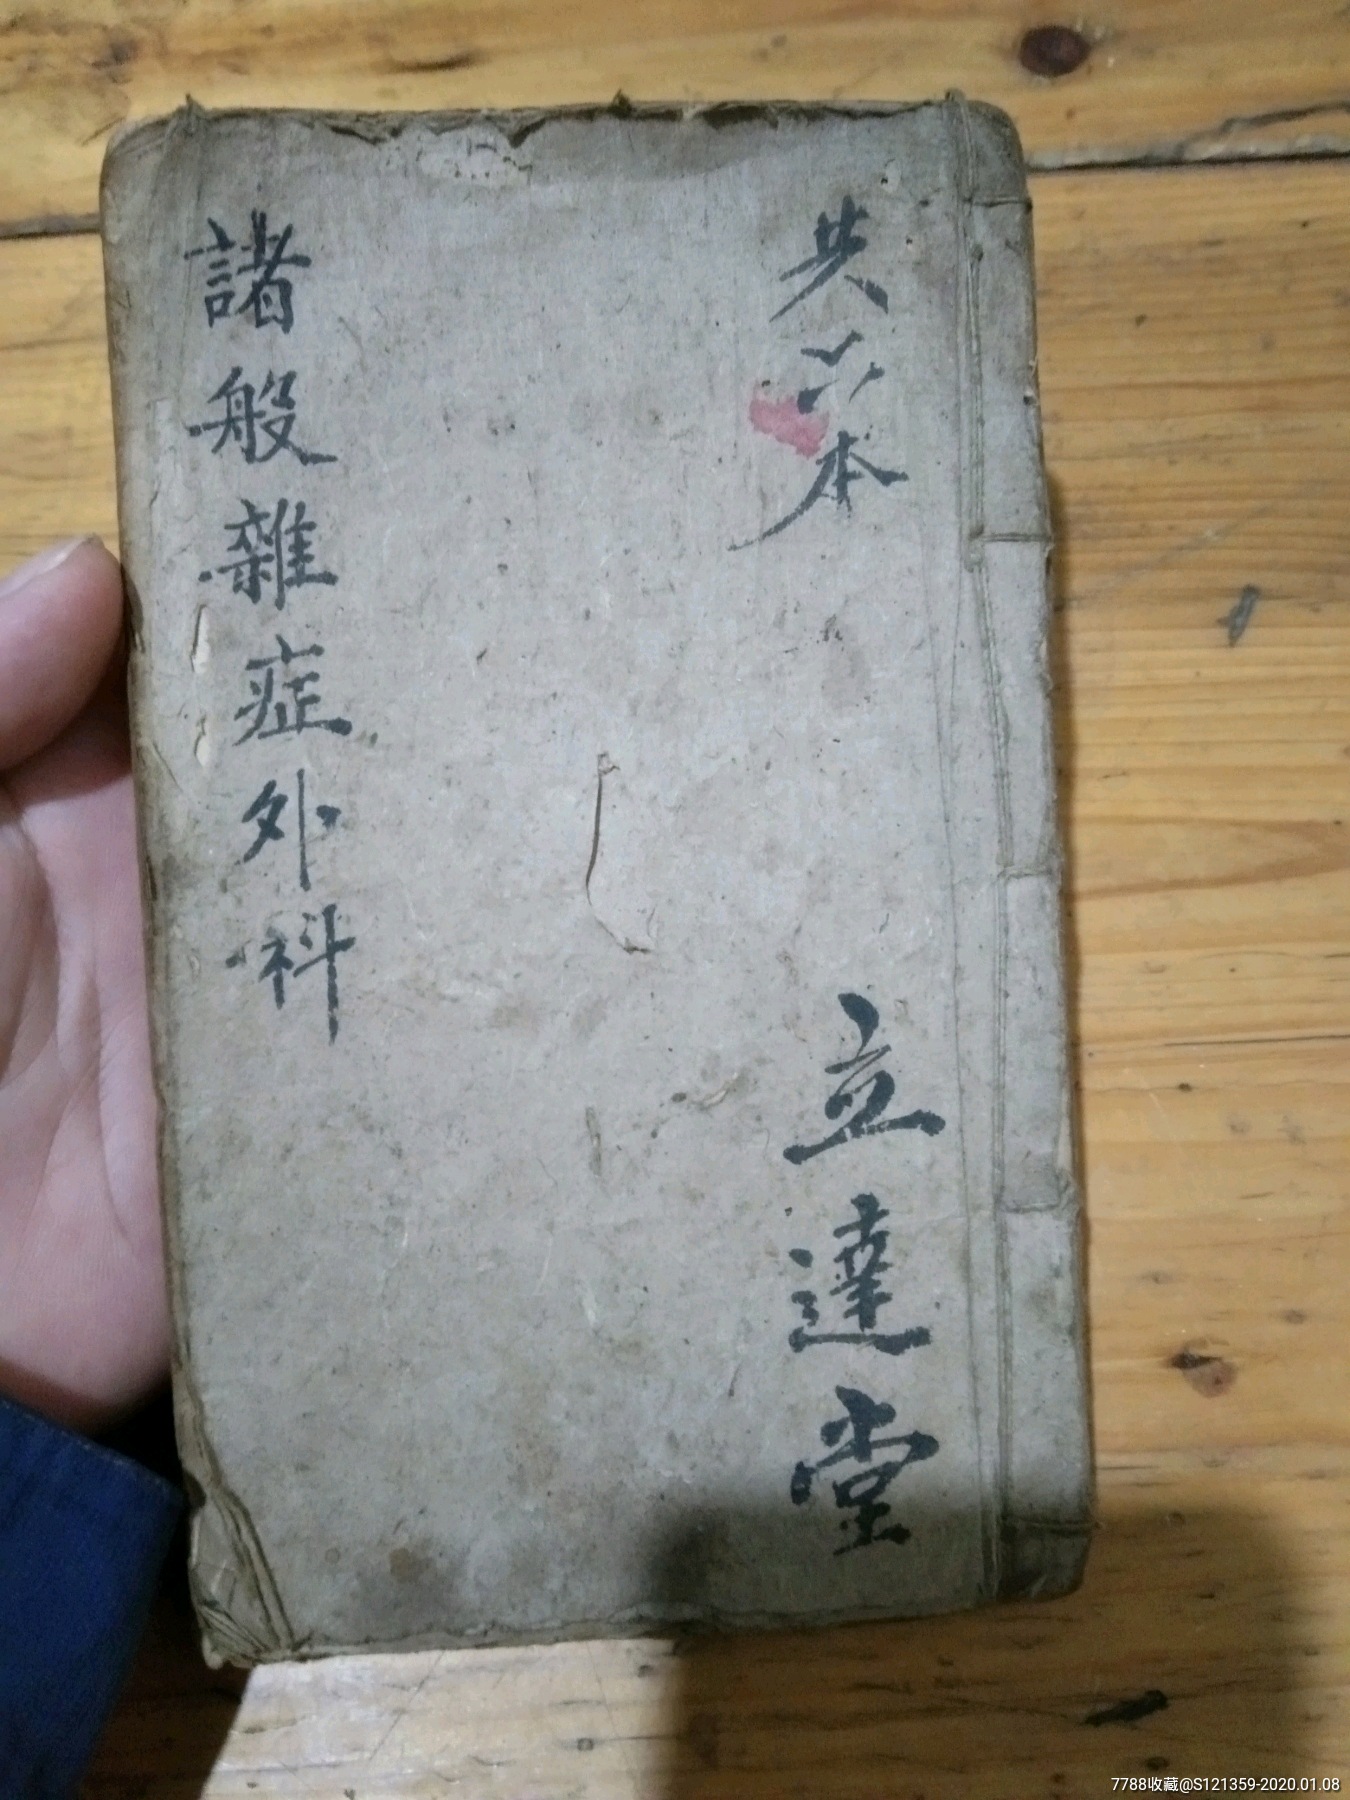 共六本
立達堂
諸般雜症外科
7788收藏@S121359-2020.01.08